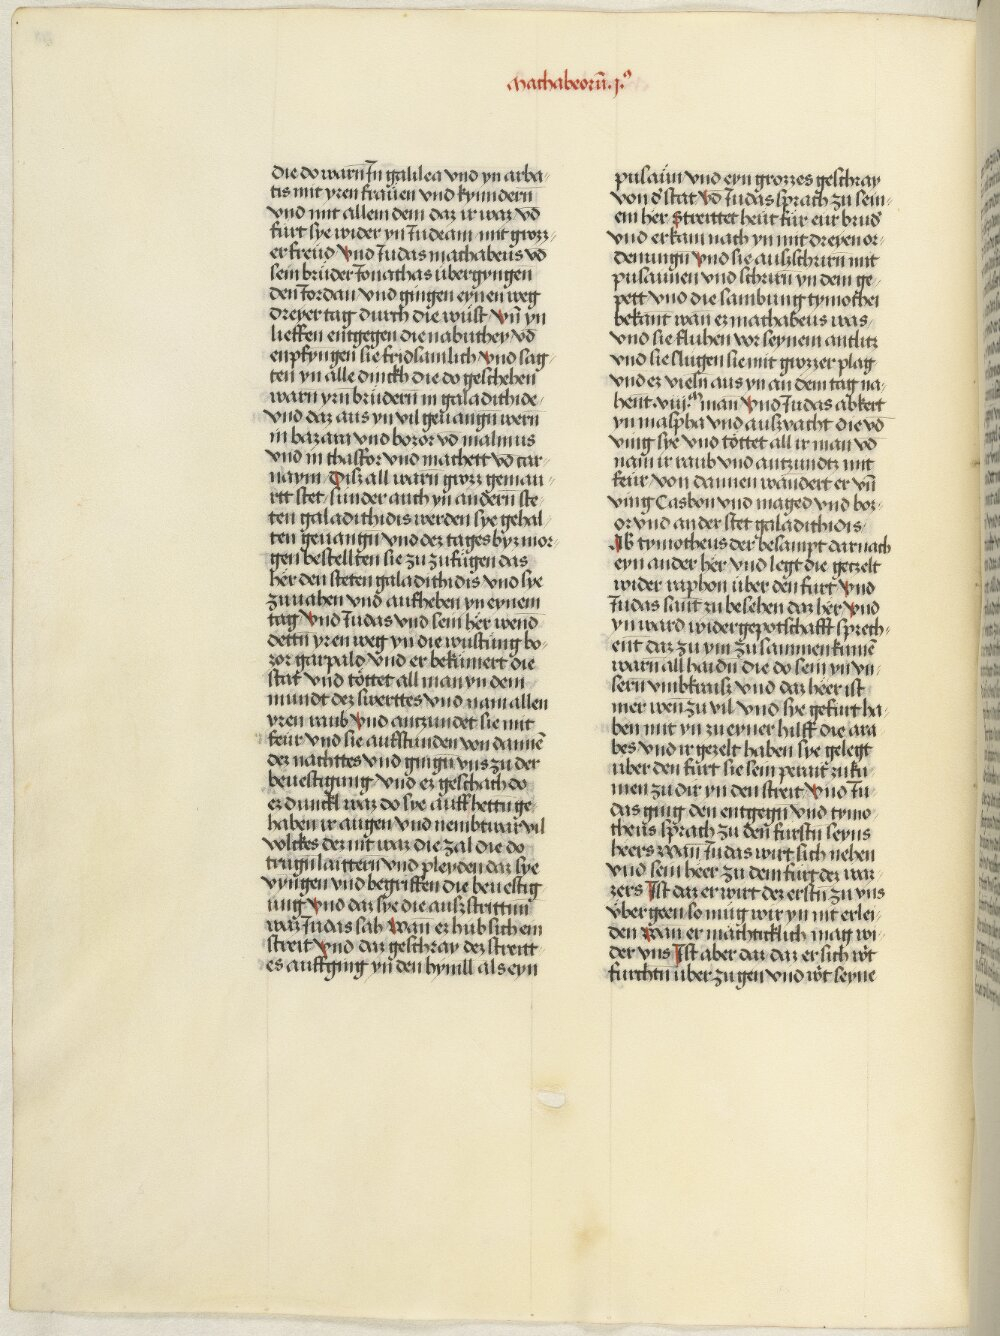 Machabeorū .j.ꝰ
die do warn̄ Jn galilea vnd yn arba-
tis mit yren fraẅen vnd kynndern
vnd mit allem dem daz ir waz vd̄
fürt sye wider yn Judeam mit grozz-
er freüd Vnd Judas machabeüs vd̄
sein brüder Jonathas übergyngen
den Jordan vnd gingen eynen weg
dreyer tag durch die wüst Vn̄ yn
lieffen entgegen die nabuthey vd̄
enpfyngen sie fridsamlich Vnd sag-
ten yn alle dinckh die do geschehen
warn yrn brüdern in galadithide
vnd daz aus yn vil geüangn wern
in bazara vnd bozor vd̄ malmus
vnd in thasfor vnd mathett vd̄ car-
naym Disz all warn grozz gemau-
rtt stet sunder auch yn andern ste-
ten galadithidis werden sye gehal-
ten geüangn vnd dez tages byz mor-
gen bestellten sie zu zufügen das
her den steten galadithidis vnd sye
zu uahen vnd aufheben yn eynem
tag Vnd Judas vnd sein her wend
dettn yren weg yn die wüstüng bo-
zor garpald Vnd er bekümert die
stat vnd töttet all man yn dem
mundt dez swerttes vnd nam allen
yren raub Vnd antzundet sie mit
feür vnd sie aufstünden von dannē
dez nachttes vnd gingn vns zu der
beuestigung Vnd ez geschach do
ez dunckl waz do sye aufkhettn ge-
haben ir augen vnd nembt war vil
volckes dez nit waz die zal die do
trugn laittern vnd pleyden daz sye
vyngen vnd begriffen die beuestig
ung Vnd daz sye die ausz strittnn
waz Judas sah Wan er hub sich ein
streit Vnd daz geschray dez streitt-
es auffging yn den hymll als eyn
pusaün vnd eyn grozzes geschray
von d' stat Vd̄ Judas sprach zu sein-
em her Streittet heüt für eur brud'
vnd er kam nach yn mit dreyen or-
denungn Vnd sie ausschrirn mit
pusaunen vnd schrirn yn dem ge-
pett Vnd die sambung tymothei
bekant wan ez machabeus was
vnd sie fluhen vor seynem antlitz
vnd sie slugen sie mit grozzer plag
vnd ez vieln aus yn an dem tag na-
hent .viij.ᵐ man Vnd Judas abkert
yn maspha vnd auszvacht die vd̄
ving sye vnd töttet all ir man vd̄
nam ir raub vnd antzundtz mit
feür Von dannen wandert er vn̄
ving Casbon vnd maged vnd boz-
or vnd ander stet galadithidis
Ab tymotheus der besampt dar nach
eyn ander her vnd legt die getzelt
wider raphon über den furt Vnd
Judas sant zu besehen daz her Vnd
yn ward widergepotschafft sprech-
ent daz zu ym zu sammen kumē
warn all haidn̄ die do sein yn vn-
sern vmbkraisz Vnd daz heer ist
mer wen̄ zu vil Vnd sye gefurt ha-
ben mit yn zu eyner hilff die ara
bes vnd ir gezelt haben sye gelegt
über den fürt sie sein perait zu ku-
men zu dir yn den streit Vnd Ju-
das ging den entgegn Vnd tymo-
theüs sprach zu den̄ fürstn seyns
heers Wan Judas wirt sich nehen
vnd sein heer zu dem fürt dez waz-
zers Ist daz er wirt dez erstn zu vns
übergeen so müg wir yn nit erlei-
den Wan er mächticklich mag wi-
der vns Ist aber daz daz er sich w't
fürchtn über zu gen vnd w't seyne